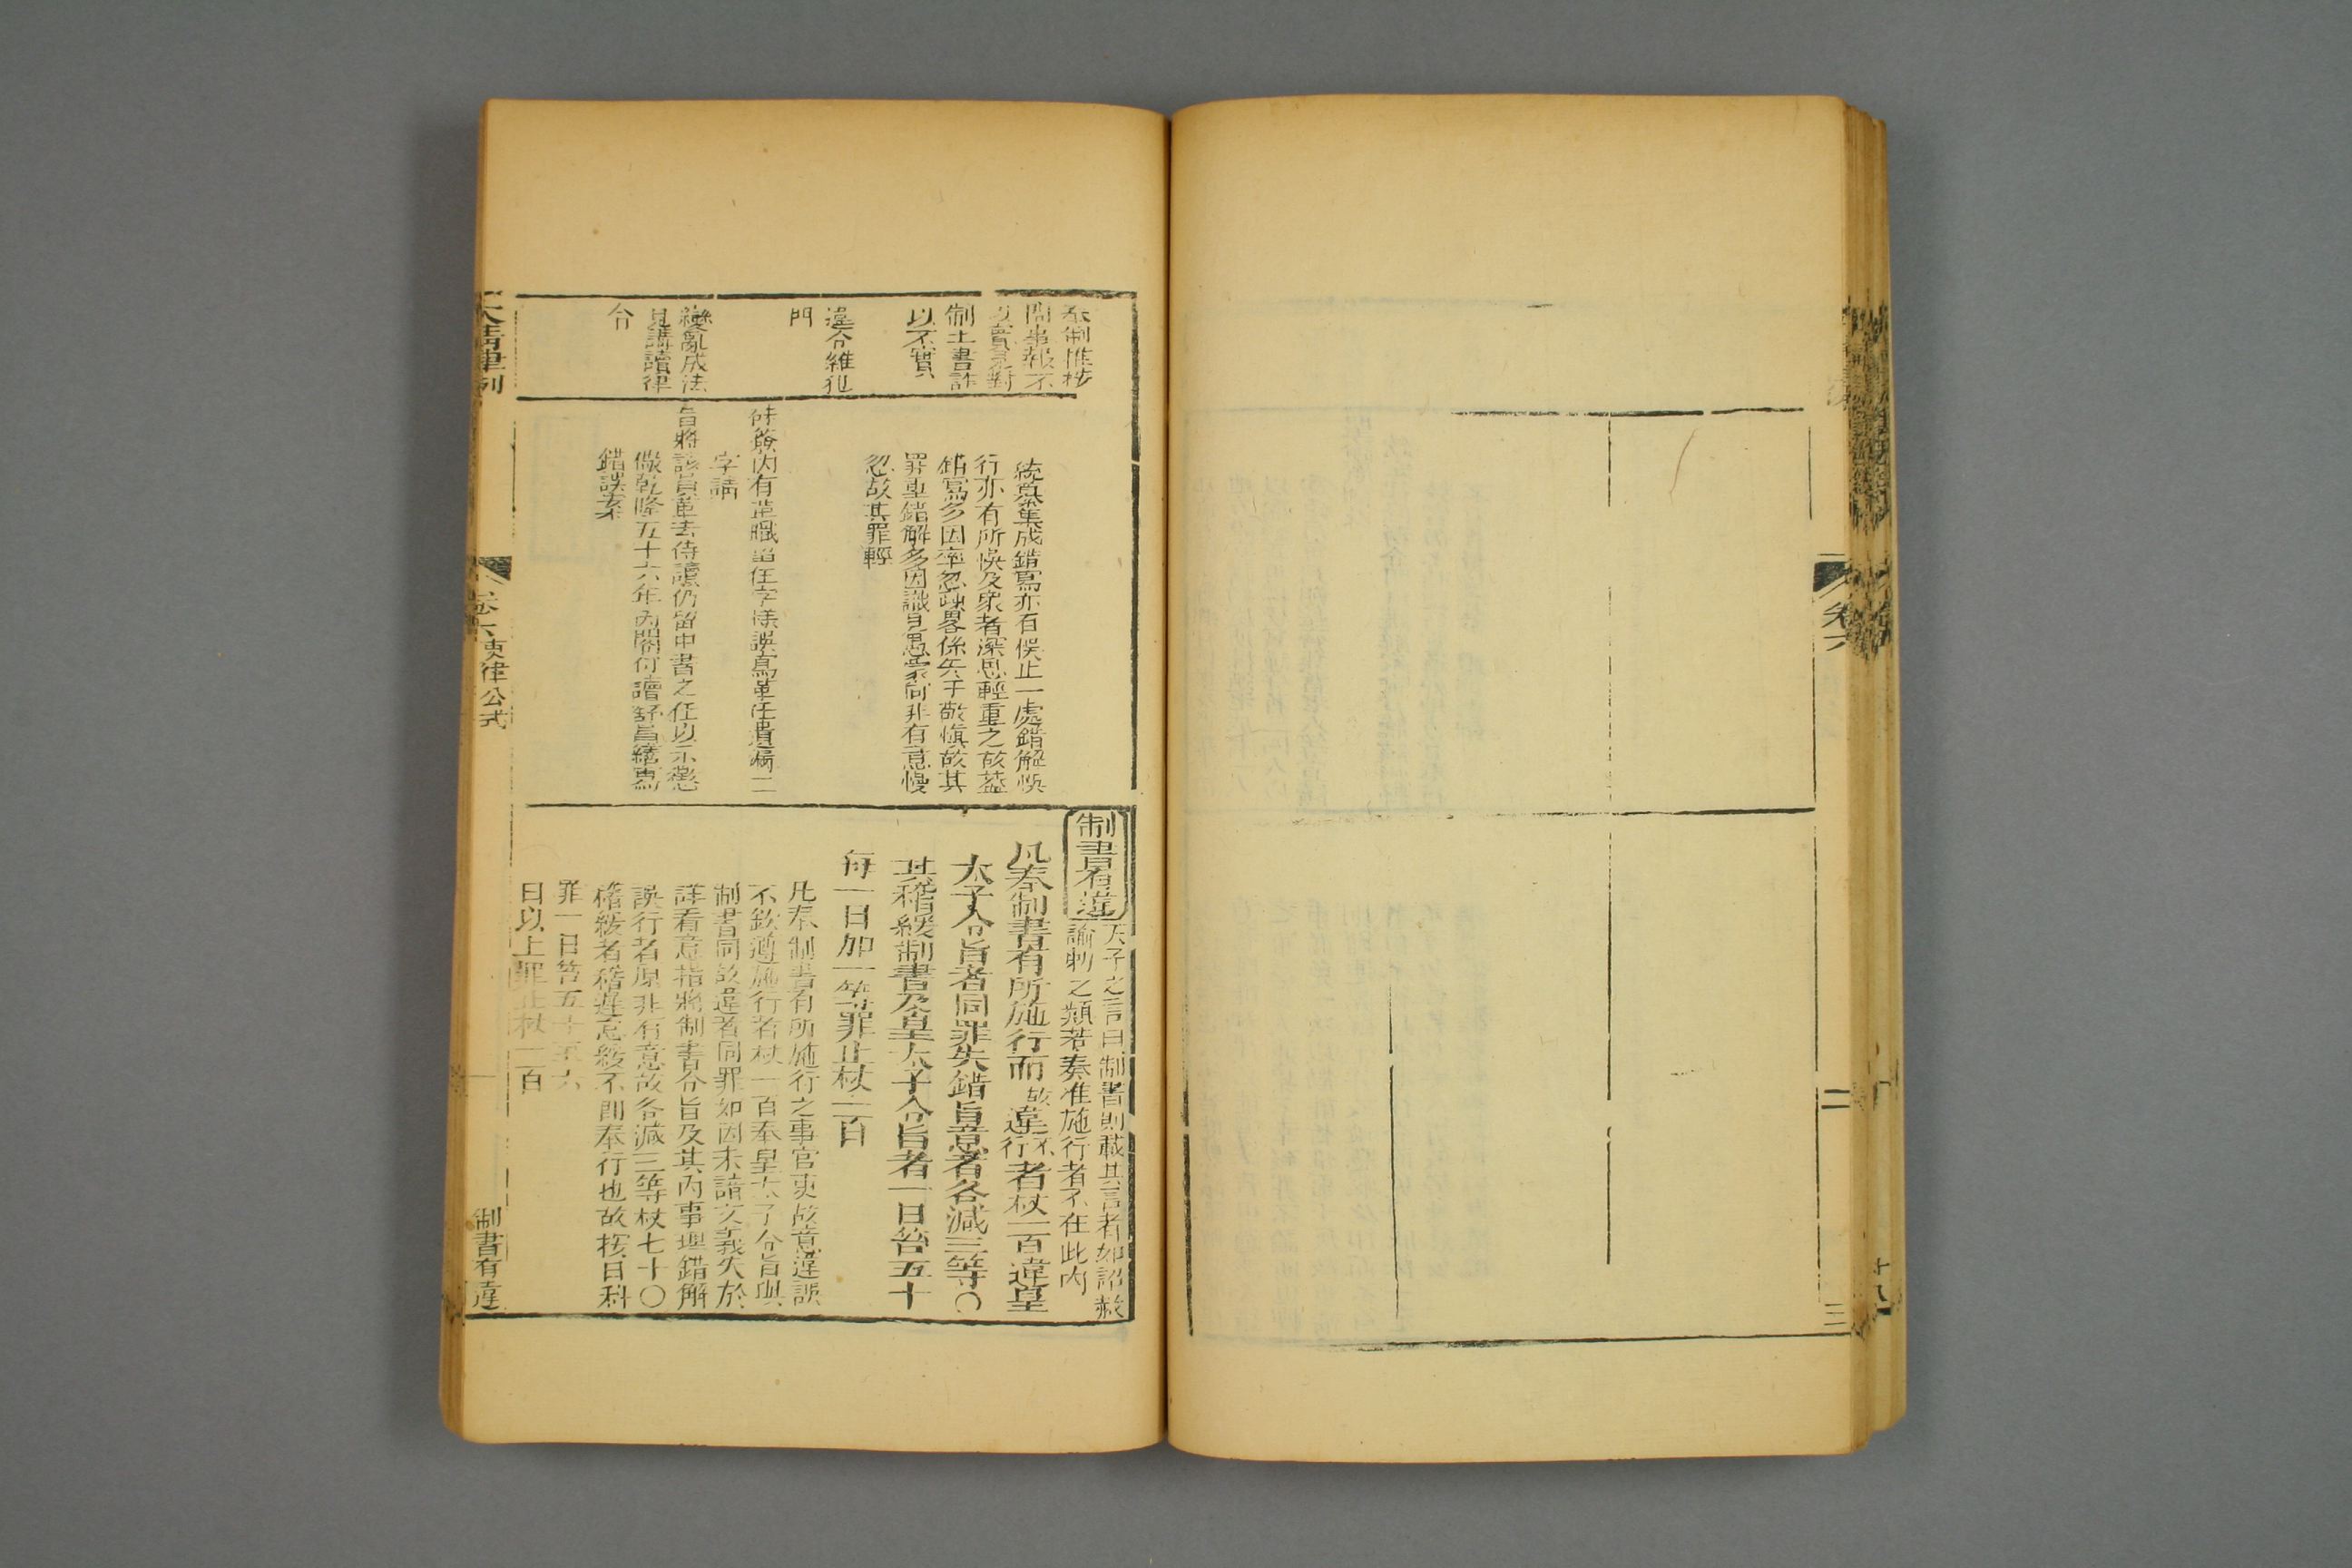 卷六
二
三
奉制推按
問事報不
以實見對
制上書詐
以不實
違令雜犯
門
變亂成法
見講讀律
令
統纂集成錯寫亦有悞止一處錯解悞
行亦有所悞及衆者深思輕重之故葢
錯寫多因率忽疎畧係失于敬慎故其
罪重錯解多因識見愚蒙尚非有意慢
忽故其罪輕
票簽內有革職留任字樣誤寫革任遺漏二
字請
旨將該員革去侍讀仍留中書之任以示懲
儆乾隆五十六年內閣侍讀舒昌繕寫
錯誤案
制書有違
天子之言曰制書則載其言者如詔赦
諭勅之類若奏准施行者不在此內
凡奉制書有所施行而故違不行者杖一百違皇
太子令旨者同罪失錯旨意者各減三等〇
其稽緩制書及皇太子令旨者一日笞五十
每一日加一等罪止杖一百
凡奉制書有所施行之事官吏故意違誤
不欽遵施行者杖一百奉皇太子令旨與
制書同故違者同罪如因未諳文義失於
詳看意指將制書令旨及其內事理錯解
誤行者原非有意故各減三等杖七十〇
稽緩者稽遲怠緩不即奉行也故按日科
罪一日笞五十至六
日以上罪止杖一百
大清律例
卷六吏律公式
制書有違